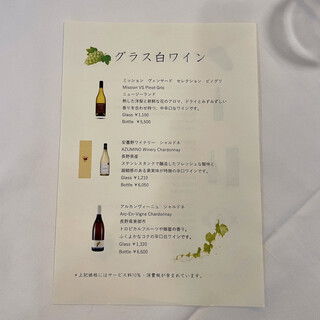 グラス白ワイン
ミッション ヴィンヤード セレクション ピングリ
Mission VS Pinot Gris
ニュージーランド
熟した洋梨と新鮮な花のアロマ、ドライとみずみずしい
香りを合わせ持つ、中辛口白ワインです。
Glass ¥1,100
Bottle ¥5,500
安曇野ワイナリー シャルドネ
AZUMINO Winery Chardonnay
長野県産
ステンレスタンクで醸造したフレッシュな酸味と
国際感のある果実味が特徴の辛口ワインです。
Glass ¥1,210
Bottle ¥6,050
アルカンヴィーニュ シャルドネ
Arc-En-Vigne Chardonnay
長野県東御市
トロピカルフルーツや蜂蜜の香り。
ふくよかなコクの辛口白ワインです。
Glass ¥1,320
Bottle ¥6,600
＊上記価格にはサービス料10%・消費税が含まれています。